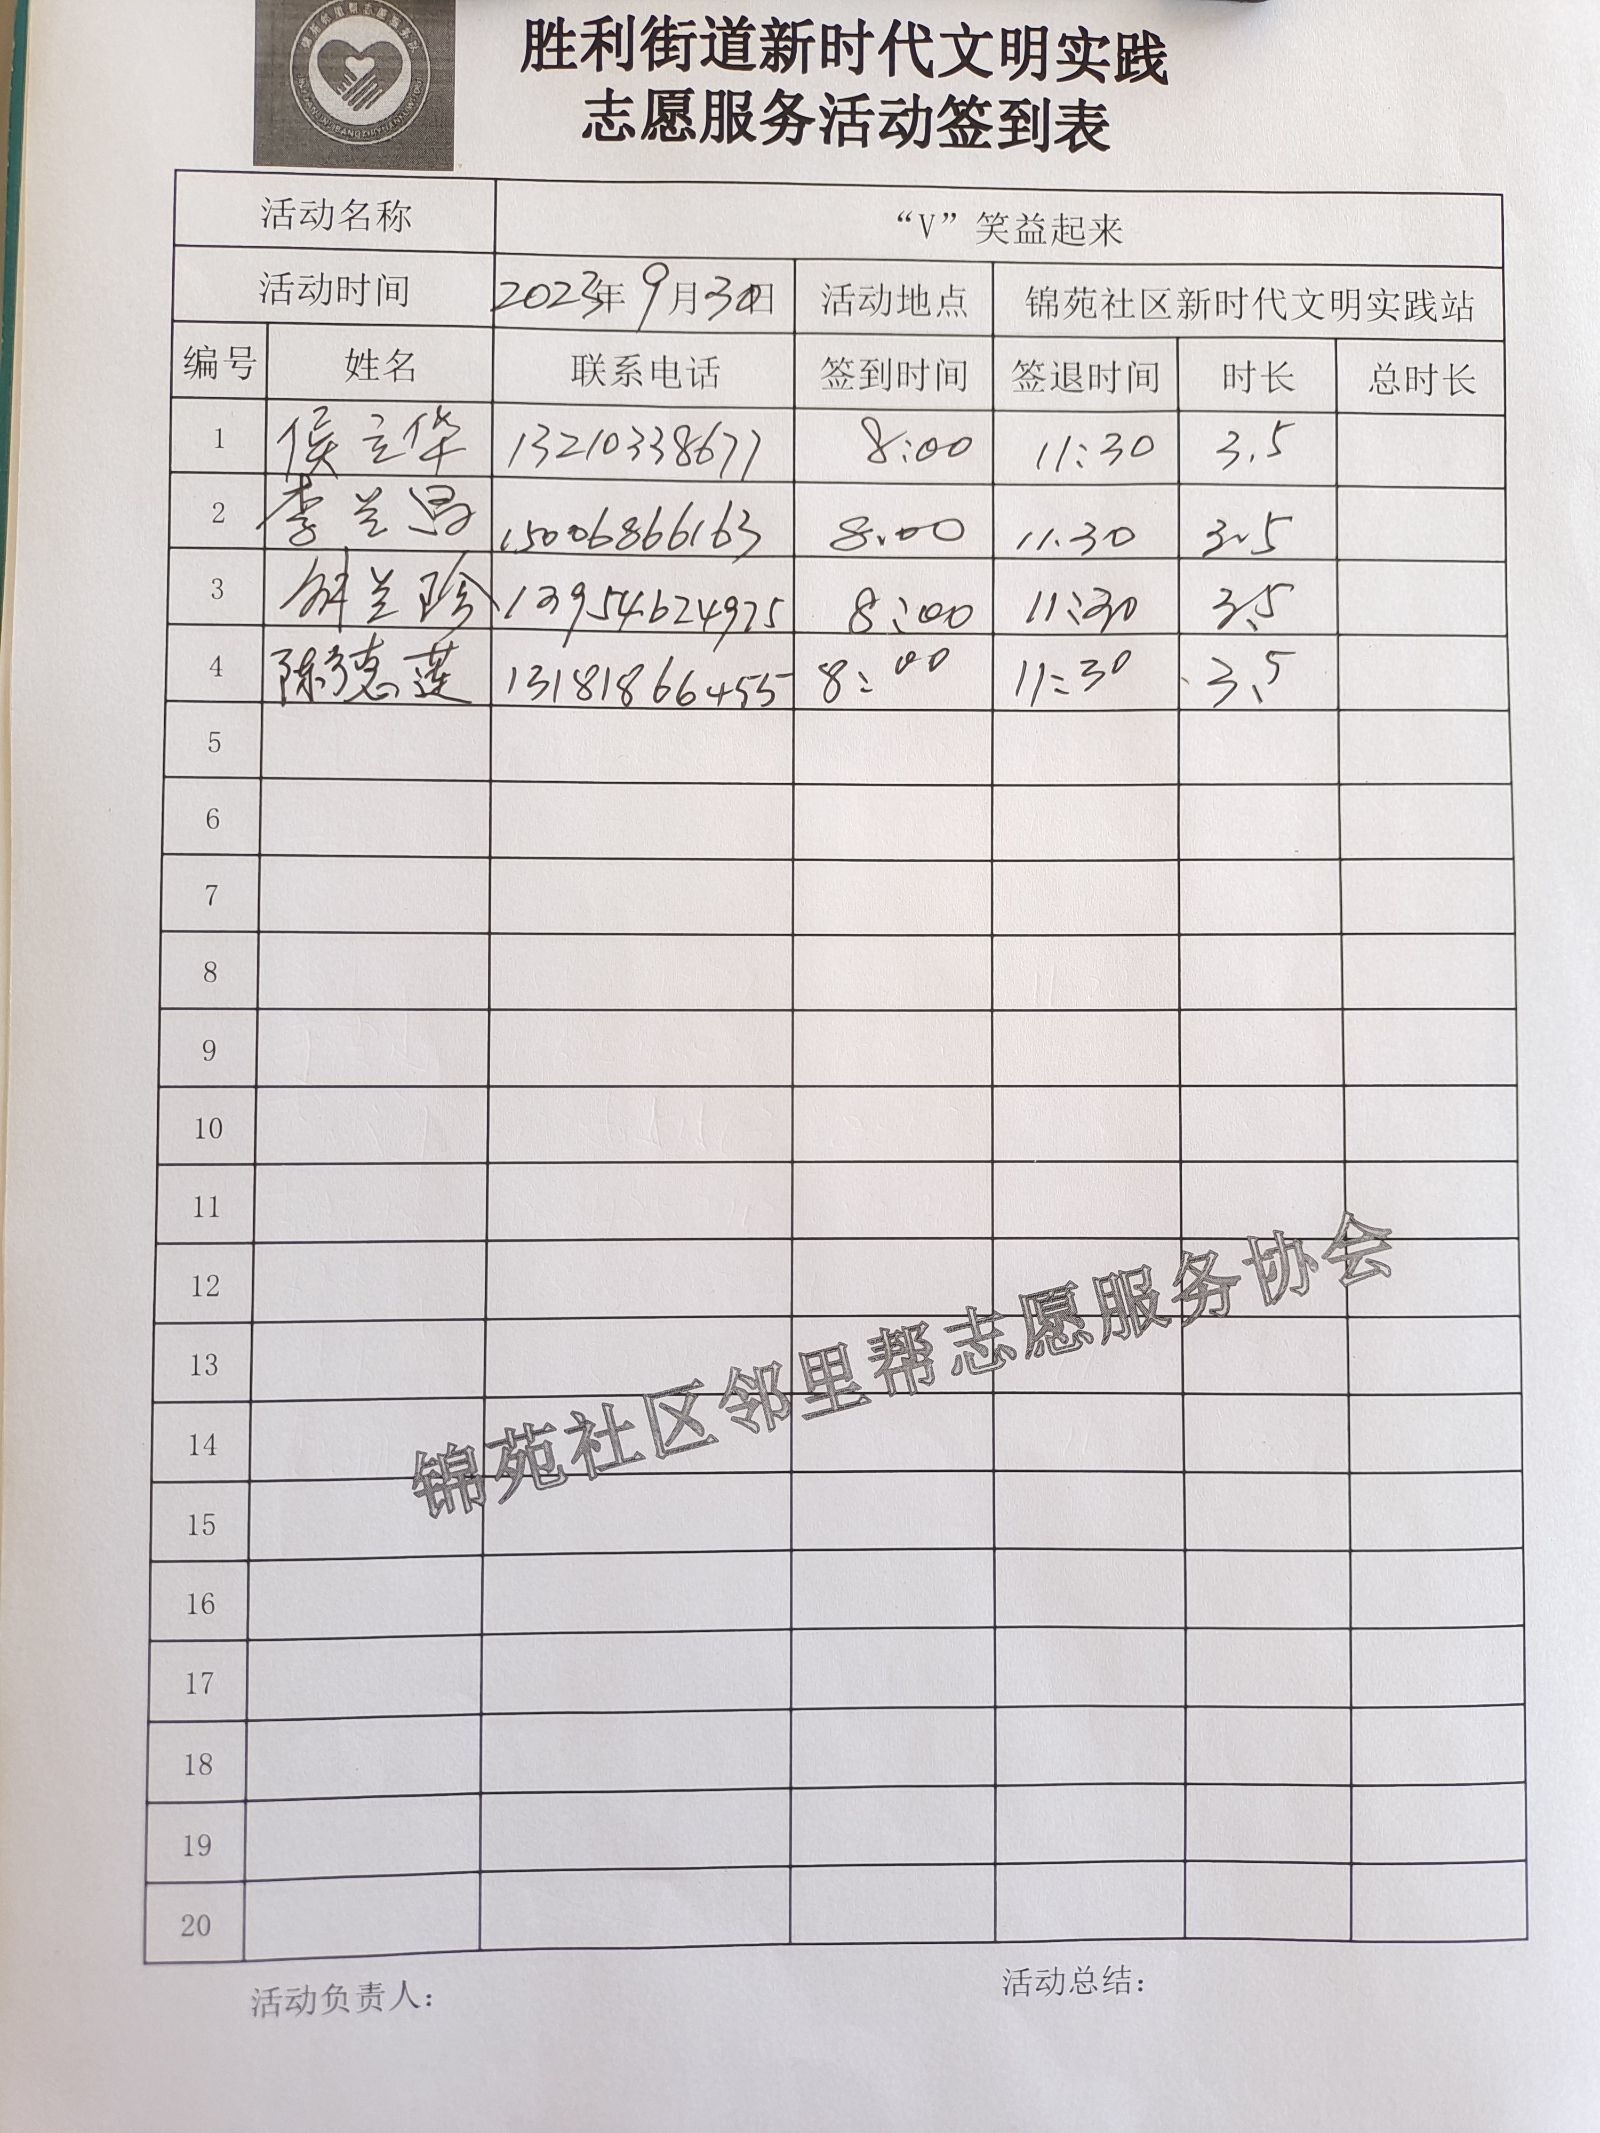 胜利街道新时代文明实践
志愿服务活动签到表
活动名称 “V”笑益起来
活动时间 2023年9月30日 活动地点 锦苑社区新时代文明实践站
编号 姓名 联系电话 签到时间 签退时间 时长 总时长
1 侯立华 13210338677 8:00 11:30 3.5
2 李兰昌 15006866163 8.00 11.30 3.5
3 兰珍 13954624975 8:00 11:30 3.5
4 陈德莲 13181866455 8:00 11:30 3.5
5
6
7
8
9
10
11
12
13
14
15
16
17
18
19
20
锦苑社区邻里帮志愿服务协会
活动负责人: 活动总结: